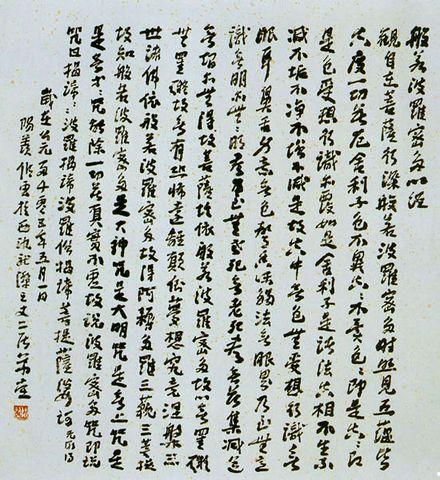 般若波羅密多心经
觀自在菩薩行深般若波羅密多时照見五蘊皆
空度一切苦厄舍利子色不異空〻不異色〻即是空〻即
是色受想行識亦復如是舍利子是诸法空相不生不
滅不垢不净不增不减是故空中無色無受想行識無
眼耳鼻舌身意無色声香味觸法無眼界乃至無意
識無明亦無〻明盡乃至無老死無老死盡無苦集滅道
無智亦無得故菩薩埵依般若波羅密多故心無罣礙
無罣礙故無有恐怖遠離顛倒夢想究竟涅槃三
世諸佛依般若波羅密多故得阿耨多羅三藐三菩提
故知般若波羅密多是大神咒是大明咒是無上咒是
無等〻咒能除一切苦真實不虚故说波羅密多咒即说
咒曰揭諦〻波羅揭諦波羅僧揭諦菩提薩婆訶
歲在公元二千零五年五月一日
陽羡